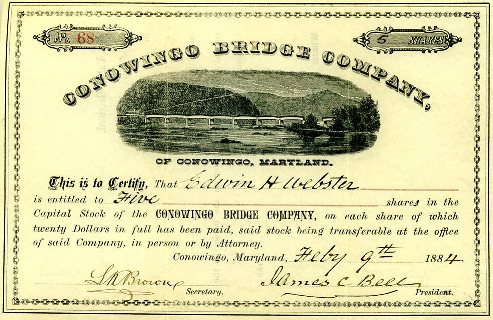 No. 68 5 SHARES
CONOWINGO BRIDGE COMPANY,
OF CONOWINGO, MARYLAND.
This is to Certify, That Edwin H Webster
is entitled to Five shares in the
Capital Stock of the CONOWINGO BRIDGE COMPANY, on each share of which
twenty Dollars in full has been paid, said stock being transferable at the office
of said Company, in person or by Attorney.
Conowingo, Maryland, Feby 9th 1884
Brown Secretary. James C Bell President.